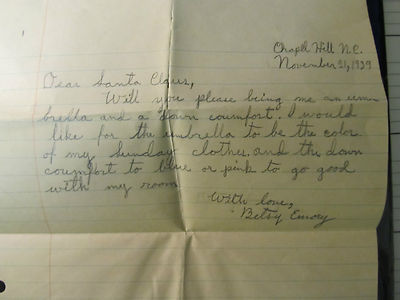 Chapel Hill N.C.
November 21, 1939
Dear Santa Claus,
Will you please being me an um
brella and a down coumfort. I would
like for the umbrella to be the color
of my Sunday clothes, and the down
coumfort to blue or pink to go good
with my room
With love,
Betsy Emory